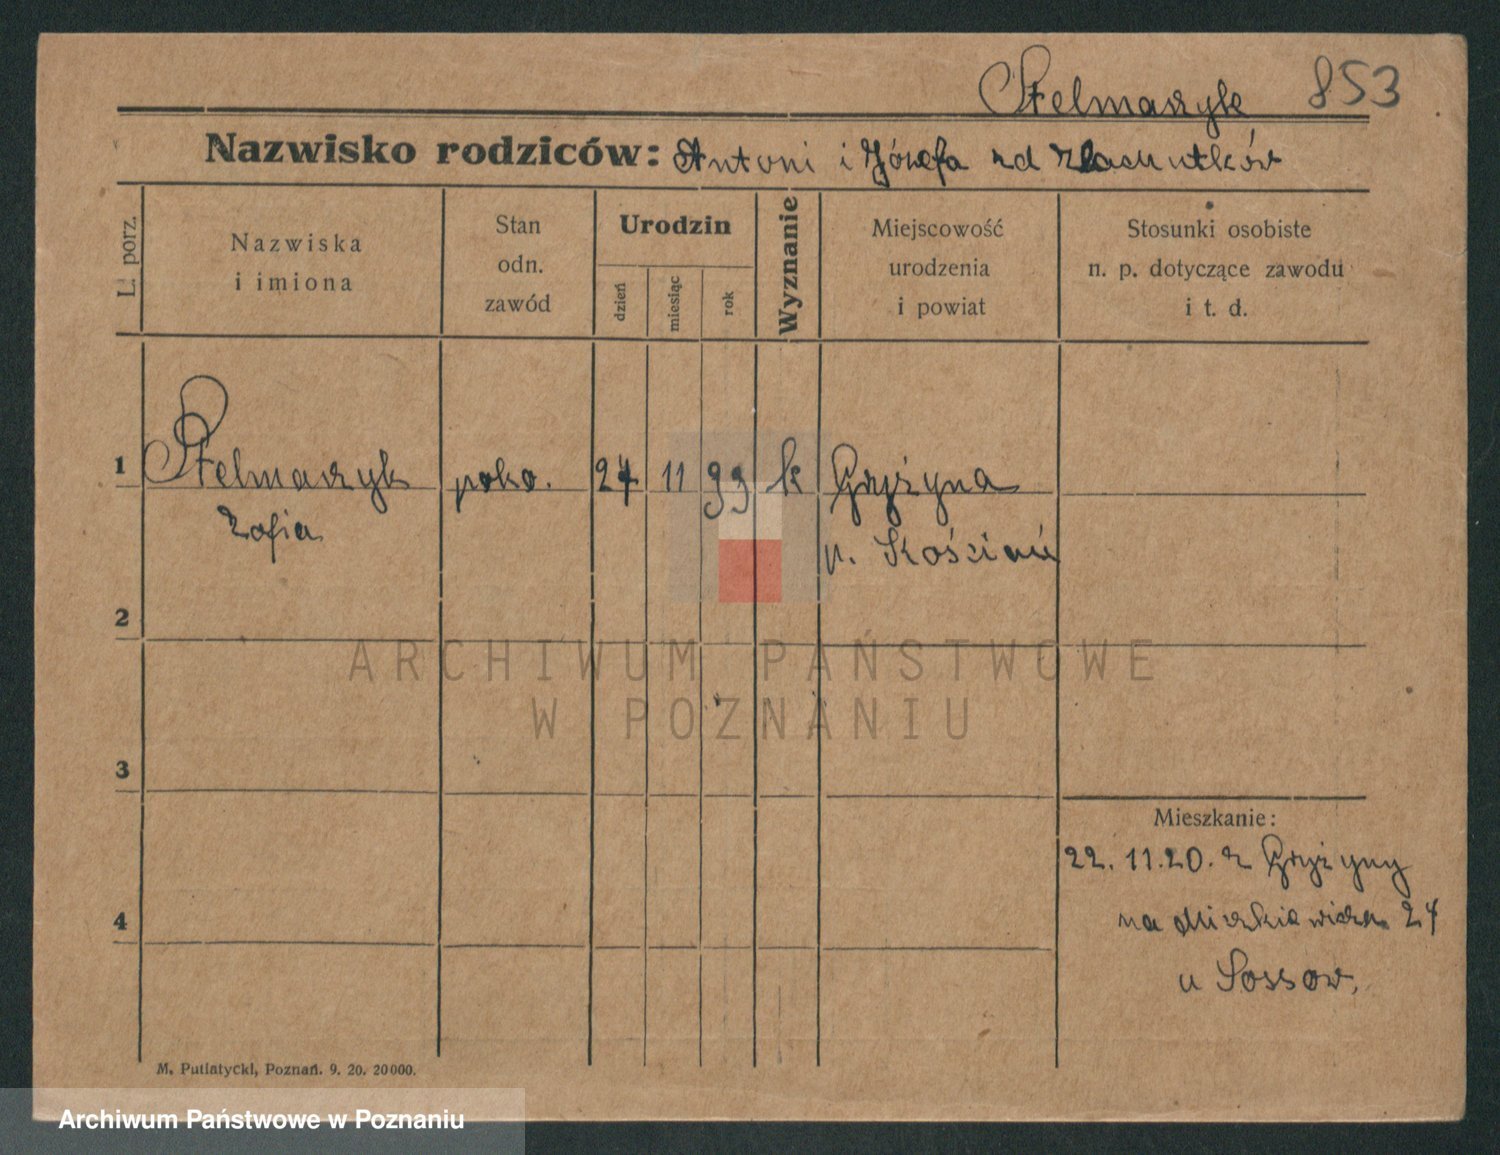 Stelmaszyk 853
Nazwisko rodziców: Antoni i Józefa zd
L. porz.
Nazwiska
i imiona
Stan
odn.
zawód
Urodzin
dzień
miesiąc
rok
Wyznanie
Miejscowość
urodzenia
i powiat
Stosunki osobiste
n. p. dotyczące zawodu
i t. d.
1 Stelmaszyk poko. 24 11 99 k Gryżyna
Zofia p. Kościań
2
3
4
Mieszkanie:
22. 11.20. z Gryżyny
na Mickiewicza 24
u Sossow.
M. Putiatycki, Poznań. 9. 20. 20000.
ARCHIWUM PAŃSTWOWE
W POZNANIU
Archiwum Państwowe w Poznaniu